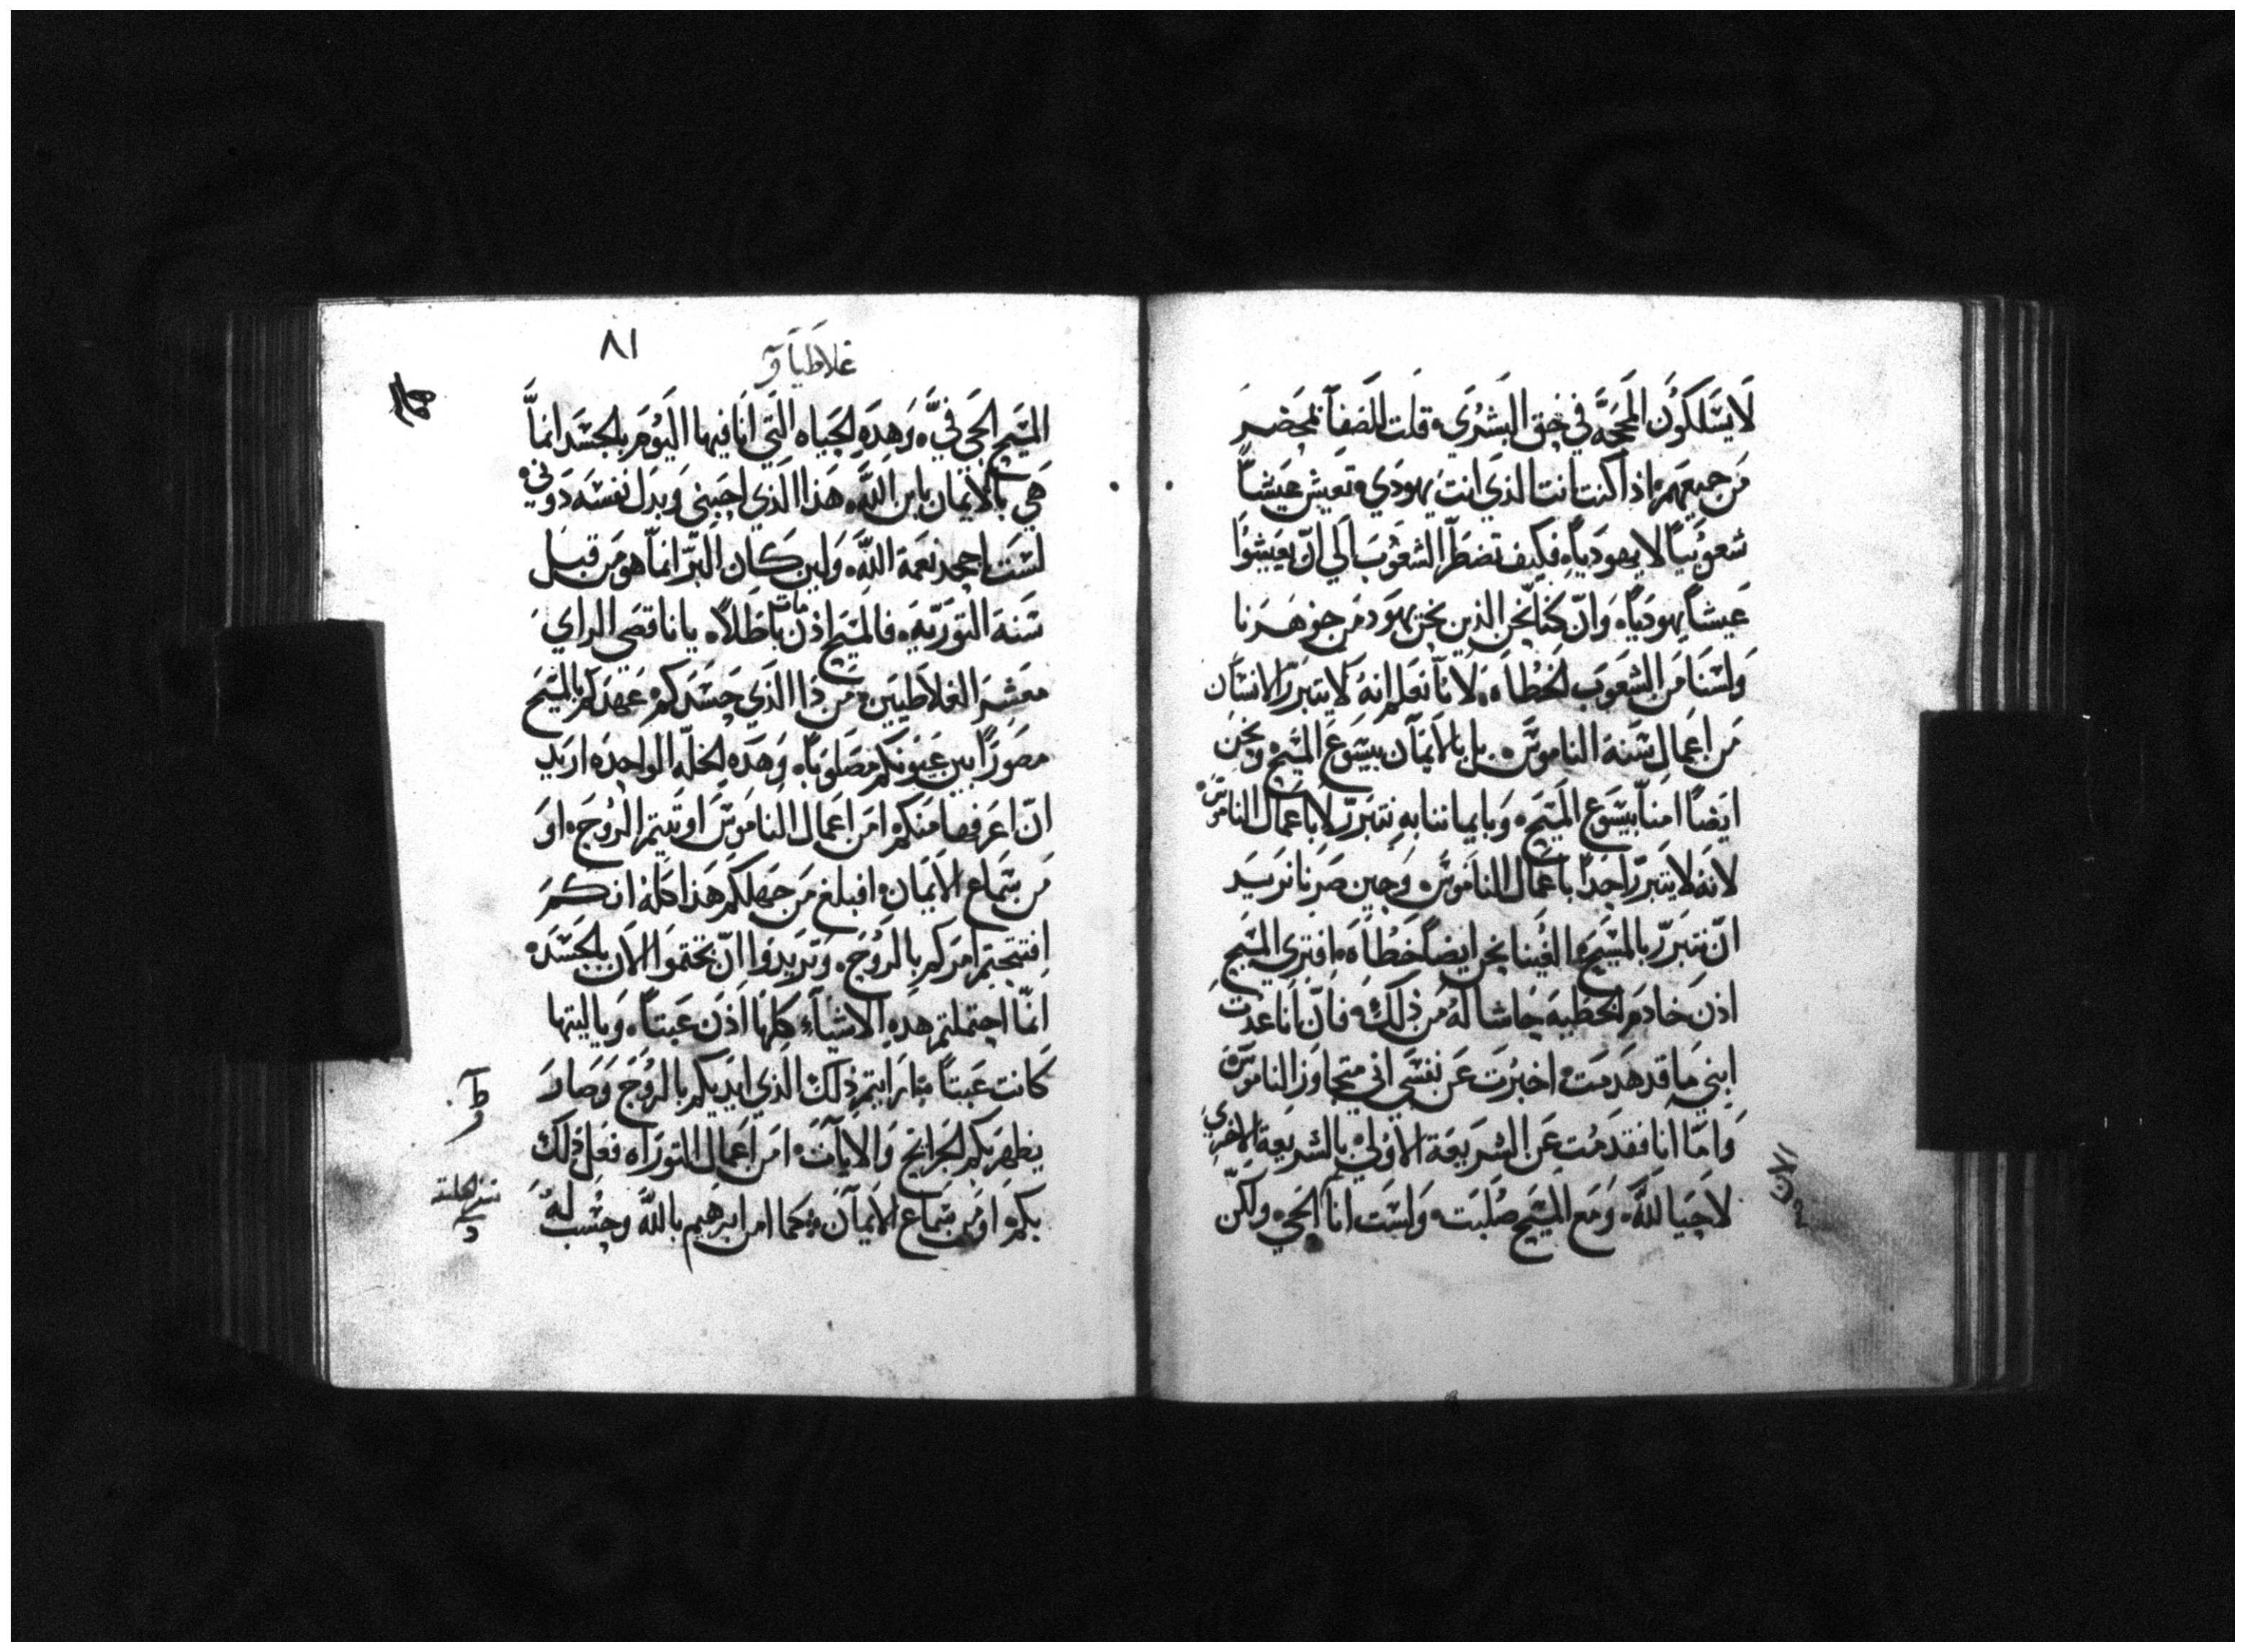 لا يسلكون المحجة في حق البشري قلت للصفا بمحضر
من جميعهم اذا كنت انت الذي انت يهودي تعيش عيشاً
شعوبياً لا يهودياً فكيف تضطر الشعوب الي ان يعيشوا
عيشاً يهودياً وان كنا نحن الذين نحن يهود من جوهرنا
ولسنا من الشعوب الخطاه لانا نعلم انه لا يتبرر الانسان
من اعمال سنة الناموس بل بالايمان بيسوع المسيح ونحن
ايضاً امنا بيسوع المسيح وبايماننا به نتبرر لا باعمال الناموس
لانه لا يتبرر احداً باعمال الناموس وحين صرنا نريد
ان نتبرر بالمسيح الفينا نحن ايضاً خطاه افتري المسيح
اذن خادم الخطيه حاشا له من ذلك فان انا عدت
ابني ما قد هدمت اخبرت عن نفسي اني متجاوز الناموس
واما انا فقد مت عن الشريعة الاولي بالشريعة الاخري
الان
لاحيا لله ومع المسيح صلبت ولست انا الحي ولكن
غلاطيا و
٨١
المسيح الحي في وهده الحياه التي انا فيها اليوم بالجسد انما
هي بالايمان بابن الله هذا الذي احبني وبدل نفسه دوني
لست اجحد نعمة الله ولين كان البر انما هو من قبل
سنة التوريه فالمسيح اذن مات باطلاً يا ناقصي الراي
معشر الغلاطيين من ذا الذي حسدكم عهدكم بالمسيح
مصوراً بين عيونكم مصلوباً وهده الخله الواحده اريد
ان اعرفها منكم امن اعمال الناموس اوتيتم الروح او
من سماع الايمان افبلغ من جهلكم هذا كله انكم
افتتحتم امركم بالروح وتريدوا ان تختموا الان بالجسد
انما احتملتم هده الاشياء كلها اذن عبتاً وياليتها
كانت عبتاً ارايتم ذلك الذي ايديكم بالروح وصار
يظهر بكم الجرايح والايات امن اعمال التوراه فعل ذلك
بكم او من سماع الايمان وكما امن ابرهيم بالله وحسب له